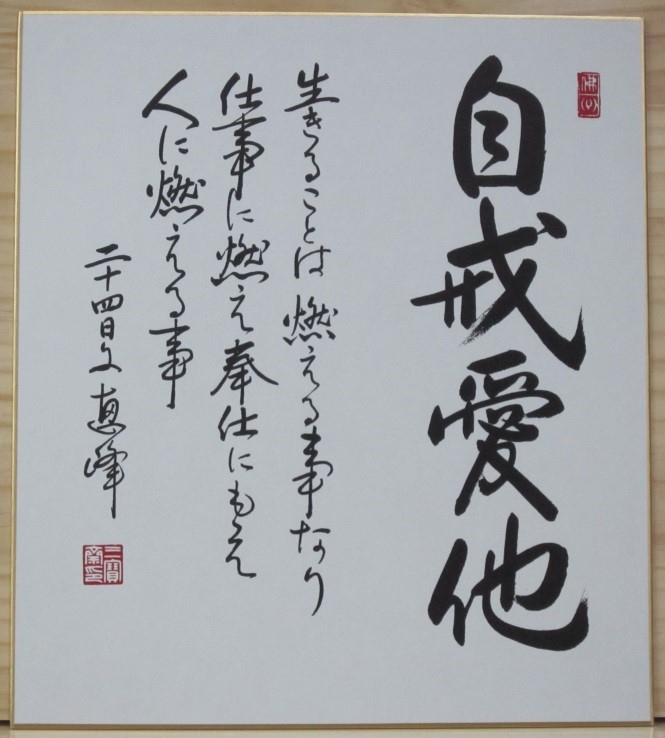 自戒愛他
生きることは燃える事なり
仕事に燃え奉仕にもえ
人に燃える事
二十四日文恵峰
佛心